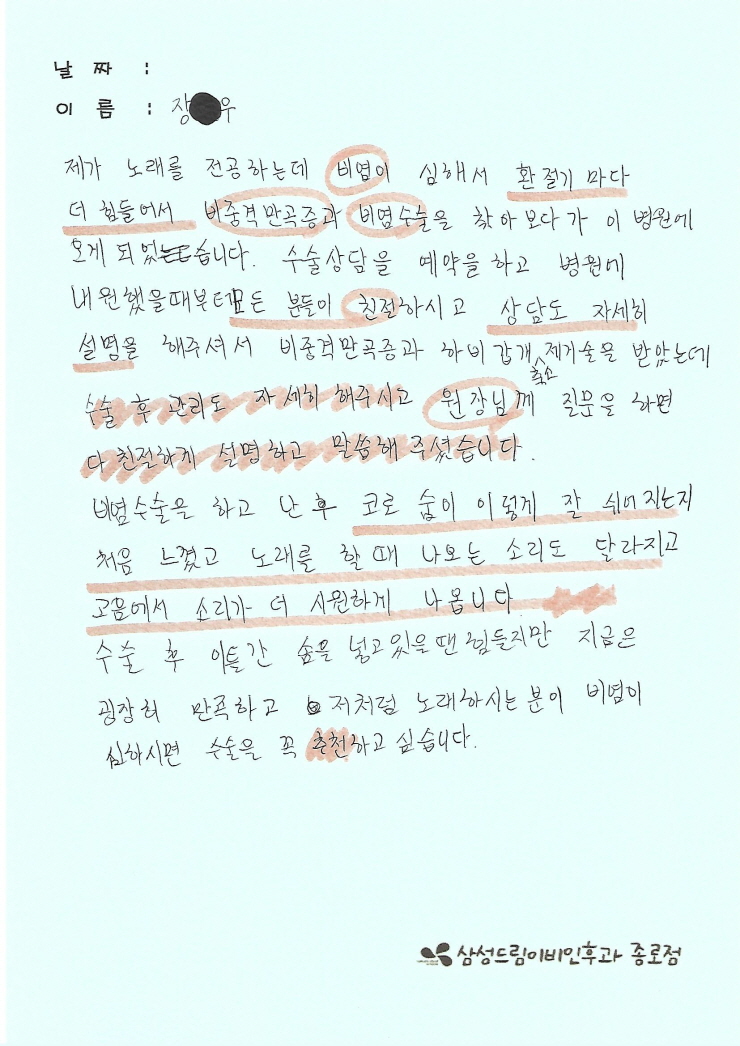 날 짜 :
이 름 : 장 우
제가 노래를 전공하는데 비염이 심해서 환절기 마다
더 힘들어서 비중격만곡증과 비염수술을 찾아보다가 이 병원에
오게 되었습니다. 수술상담을 예약을 하고 병원에
내원했을때부터 모든 분들이 친절하시고 상담도 자세히
설명을 해주셔서 비중격만곡증과 하비갑개 축소 제거술을 받았는데
수술 후 관리도 자세히 해주시고 원장님께 질문을 하면
다 친절하게 설명하고 말씀해 주셨습니다.
비염수술을 하고 난 후 코로 숨이 이렇게 잘 쉬어지는지
처음 느꼈고 노래를 할 때 나오는 소리도 달라지고
고음에서 소리가 더 시원하게 나옵니다
수술 후 이틀간 솜을 넣고있을땐 힘들지만 지금은
굉장히 만족하고 저처럼 노래하시는 분이 비염이
심하시면 수술을 꼭 추천하고 싶습니다.
삼성드림이비인후과 종로점